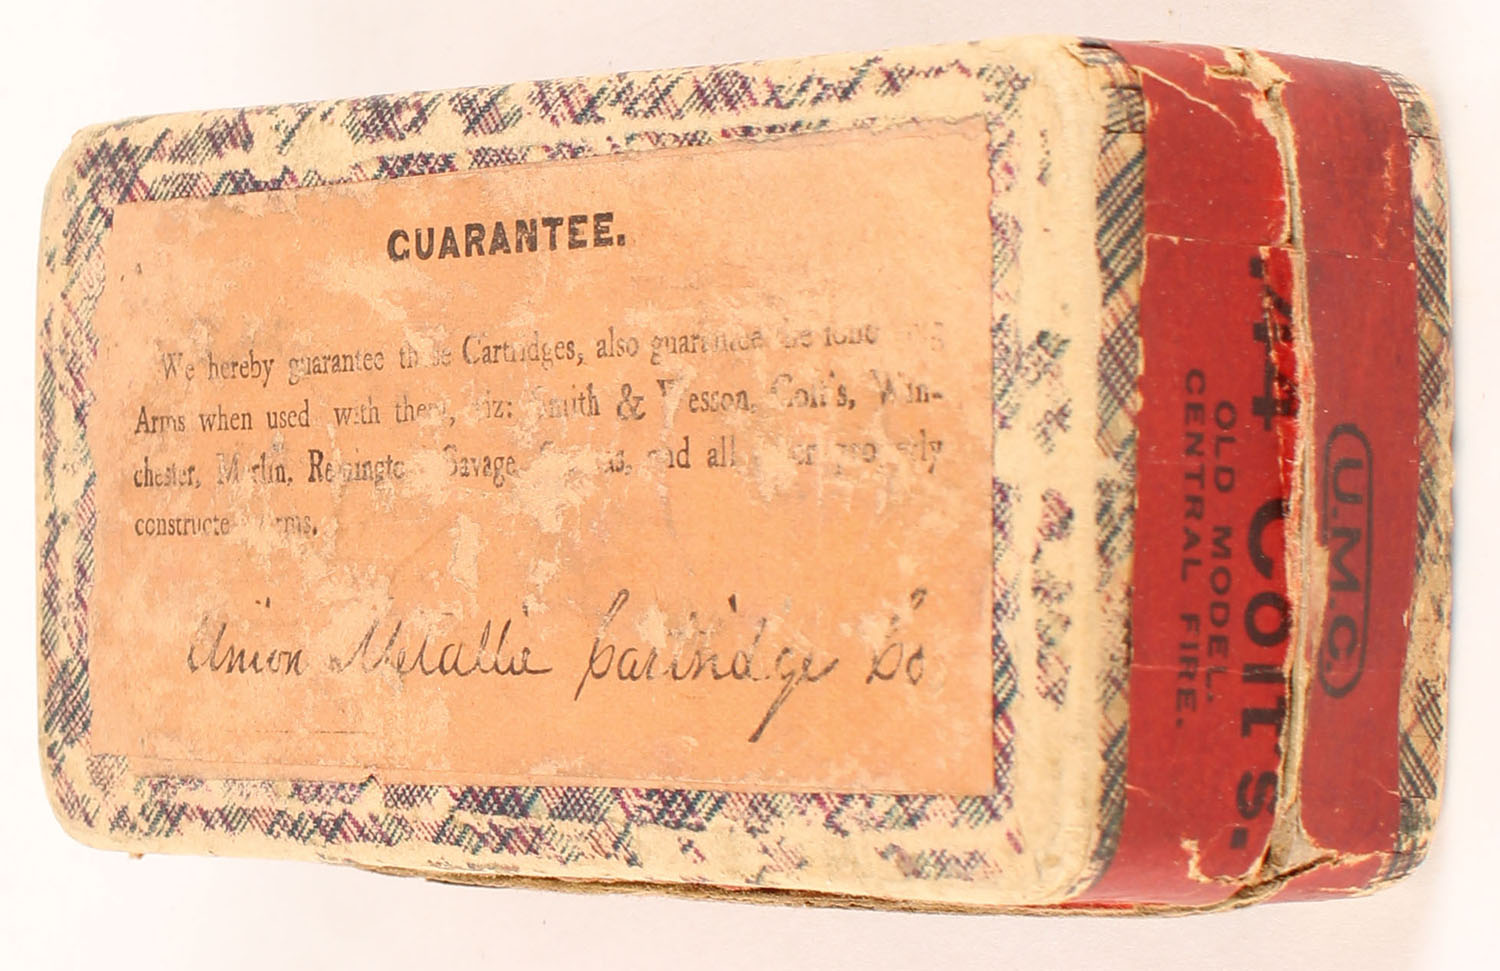 GUARANTEE.
We hereby guarantee these Cartridges, also guarantee the following
Arms when used with them, viz: Smith & Wesson, Colt's, Win-
chester, Marlin, Remington, Savage, and all other properly
constructed Arms.
Union Metallic Cartridge Co
U.M.C.
.44 Colt's.
OLD MODEL.
CENTRAL FIRE.